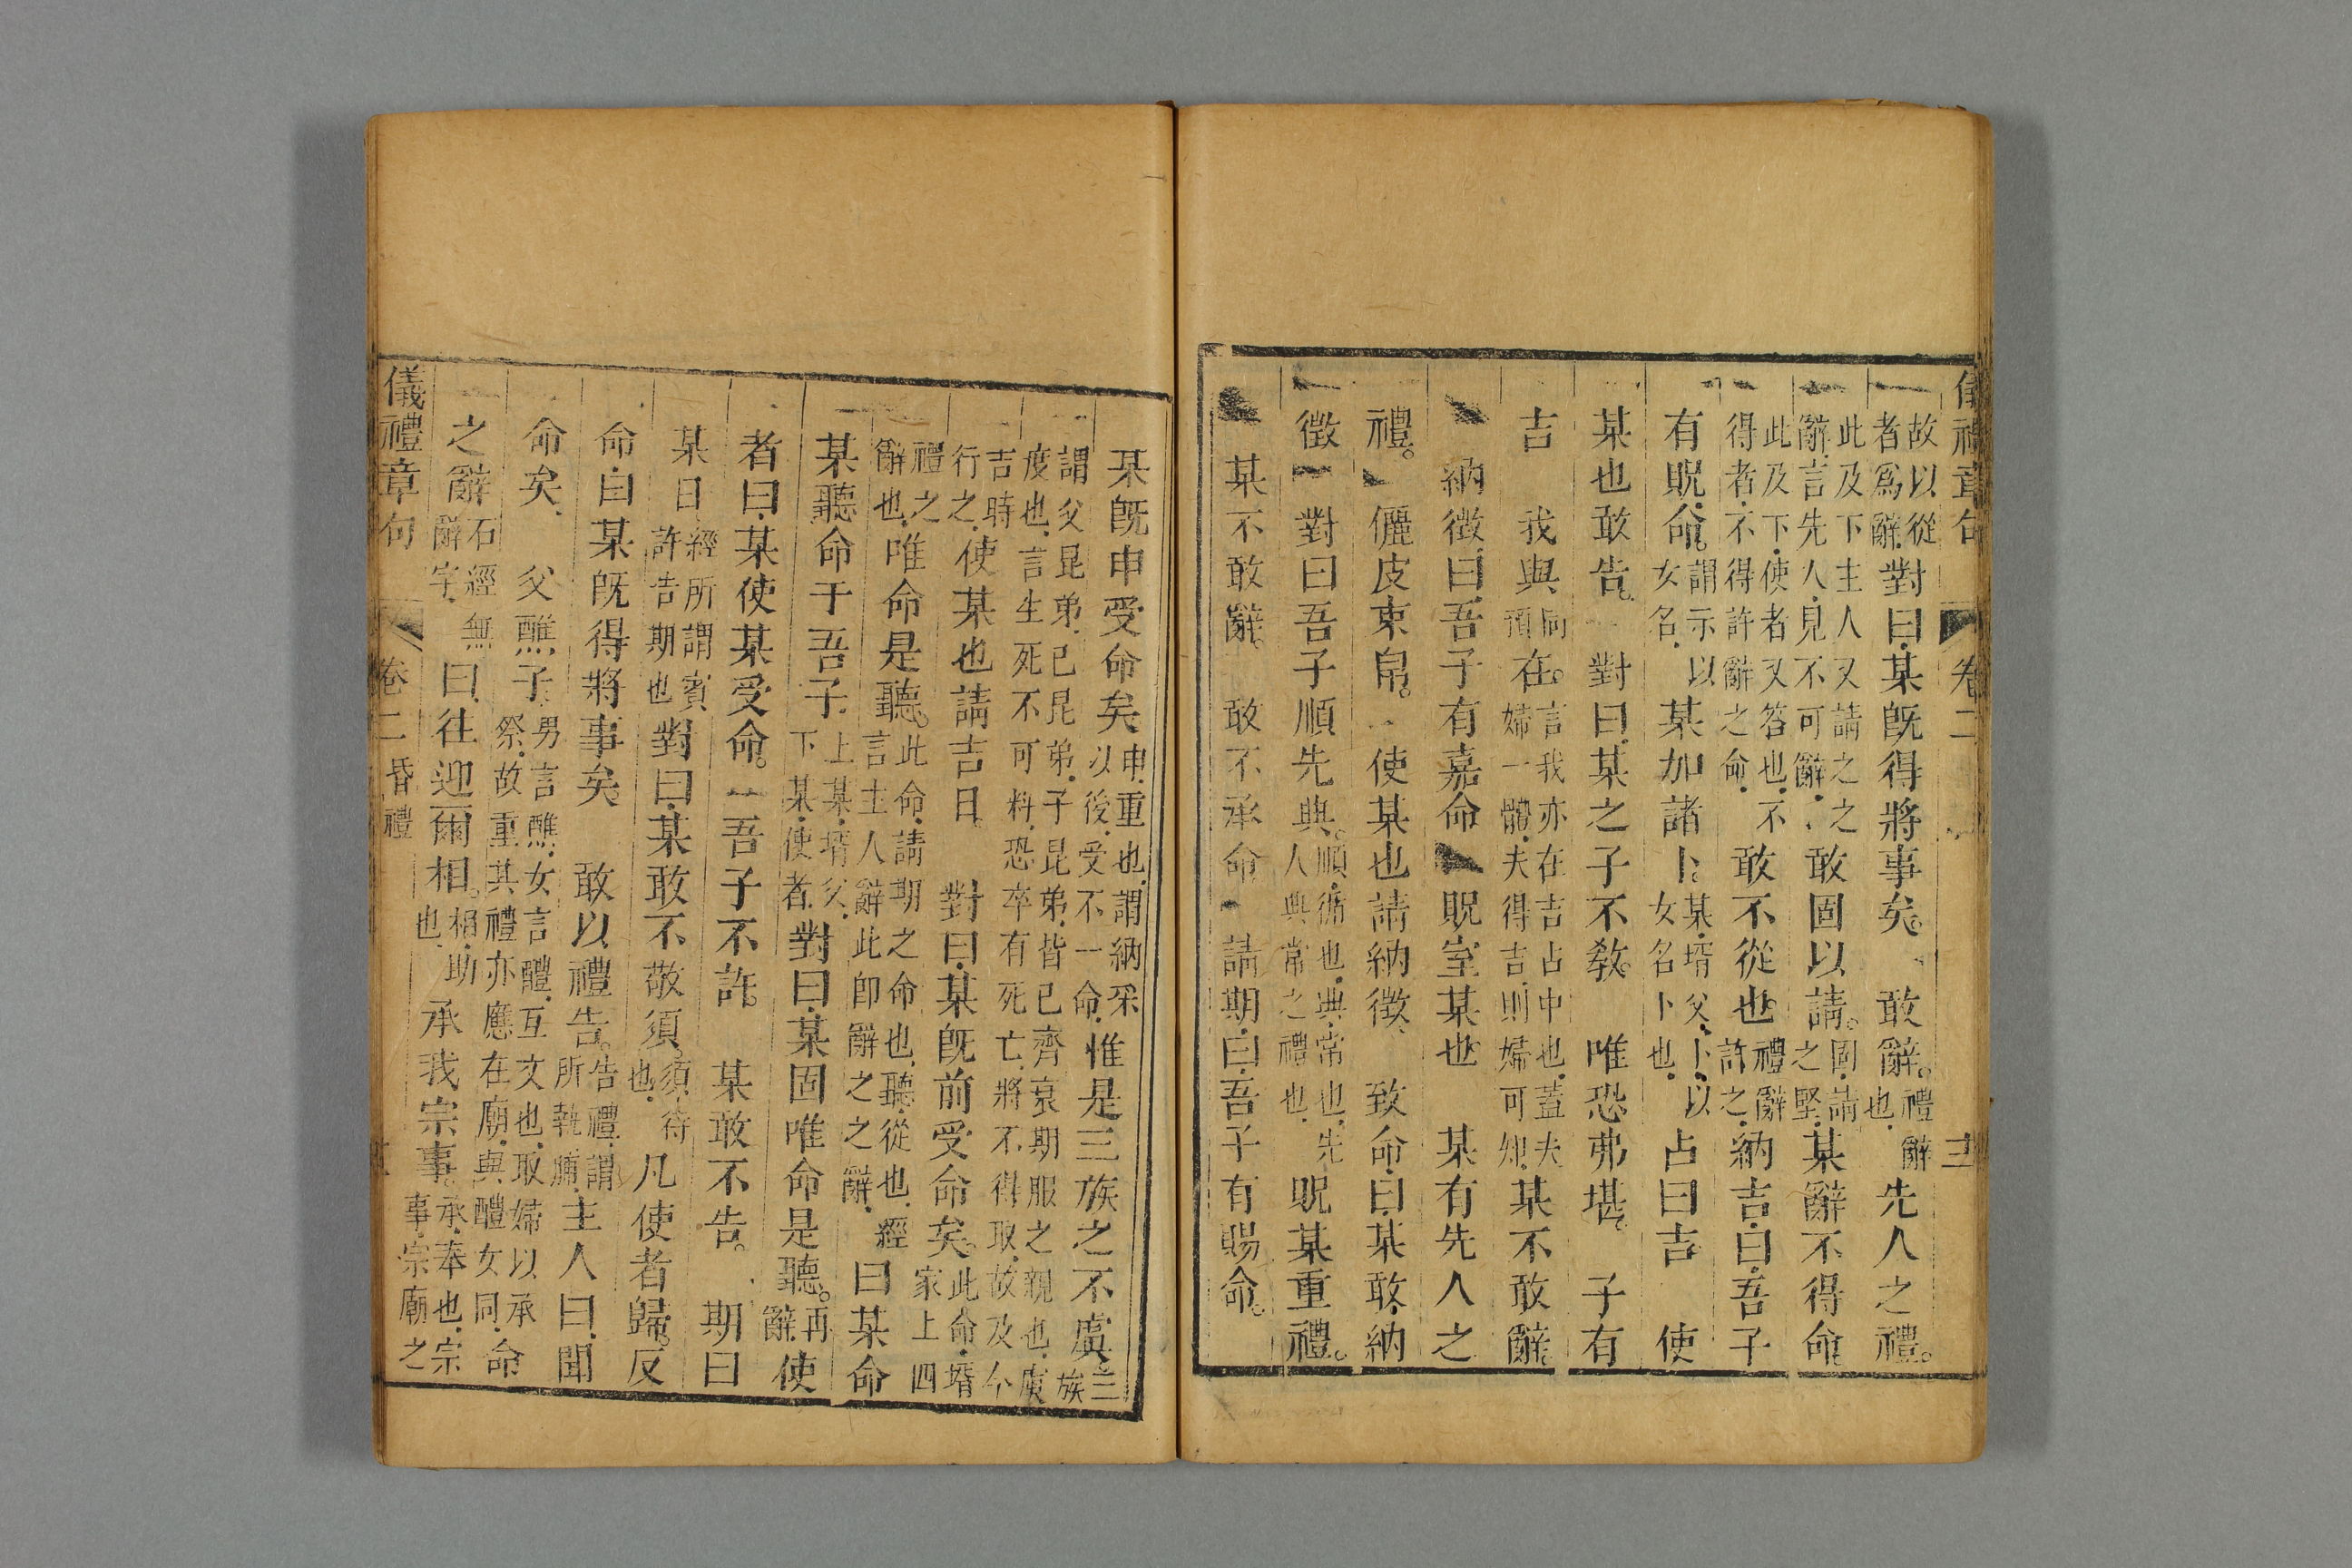 儀禮章句 卷二
故以從者爲辭對曰某旣得將事矣敢辭禮辭也先人之禮
此及下主人又請之之辭言先人見不可辭敢固以請固請之堅某辭不得命
此及下使者又答也不得者不得許辭之命敢不從也禮辭許之納吉曰吾子
有貺命謂示以女名某加諸卜某壻父卜以女名卜也占曰吉使
某也敢告對曰某之子不教唯恐弗堪子有
吉我與同預在言我亦在吉占中也蓋夫婦一體夫得吉則婦可知某不敢辭
納徵曰吾子有嘉命貺室某也某有先人之
禮儷皮束帛使某也請納徵致命曰某敢納
徵對曰吾子順先典順循也典常也先人典常之禮也貺某重禮
某不敢辭敢不承命請期曰吾子有賜命
某旣申受命矣申重也謂納采以後受不一命惟是三族之不虞三族
謂父昆弟己昆弟子昆弟皆己齊衰期服之親也虞度也言生死不可料恐卒有死亡將不得取故及今
吉時行之使某也請吉日對曰某旣前受命矣此命壻家上四
禮之辭也唯命是聽此命請期之命也聽從也經言主人辭此卽辭之之辭曰某命
某聽命于吾子上某壻父下某使者對曰某固唯命是聽再辭使
者曰某使某受命吾子不許某敢不告期曰
某日經所謂賓許告期也對曰某敢不敬須須待也凡使者歸反
命曰某旣得將事矣敢以禮告告禮謂所執脯主人曰聞
命矣父醮子男言醮女言醴互文也取婦以承祭故重其禮亦應在廟與醴女同命
之辭石經無辭字曰往迎爾相相助也承我宗事承奉也宗事宗廟之
儀禮章句 卷二 昏禮